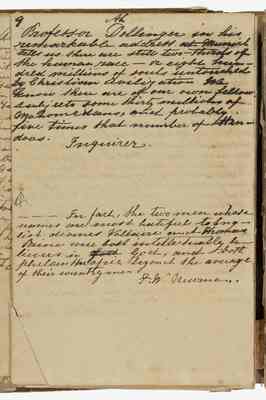 9
Professor Dollenger in his
remarkable address at Munich
tells us there are yet two thirds of
the human race — or eight hun-
dred millions of souls untouched
by Christian Civilization. We
know there are of our own fellow
subjects some thirty millions of
Mahomedans, and probably
five times that number of Hin-
doos.
Inquirer.
——— In fact, the two men whose
names are most hateful to Eng-
lish divines Voltaire and Thomas
Paine were both intellectually be-
lievers in God, and both
philanthropic beyond the average
of their countrymen.
F. W. Newman.